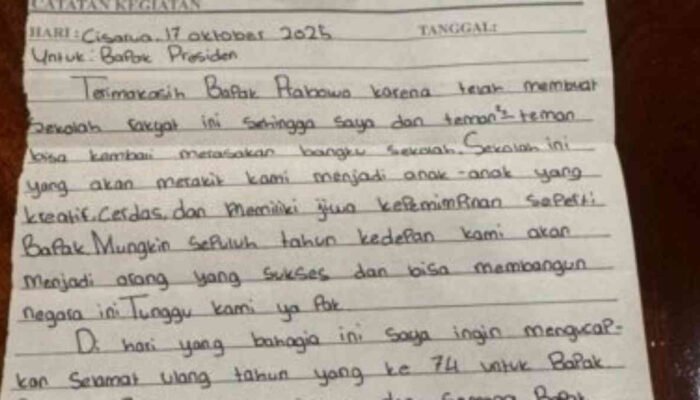 CATATAN KEGIATAN
HARI : Cisarua, 17 oktober 2025 TANGGAL:
Untuk : Bapak Presiden
Terimakasih Bapak Prabowo karena telah membuat
Sekolah rakyat ini sehingga saya dan teman²-teman
bisa kembali merasakan bangku sekolah. Sekolah ini
yang akan merakit kami menjadi anak-anak yang
kreatif, Cerdas, dan memiliki jiwa kepemimpinan seperti
Bapak Mungkin sepuluh tahun kedepan kami akan
menjadi orang yang sukses dan bisa membangun
negara ini Tunggu kami ya Pak
Di hari yang bahagia ini Saya ingin mengucap-
kan Selamat ulang tahun yang ke 74 untuk Bapak
Bapak